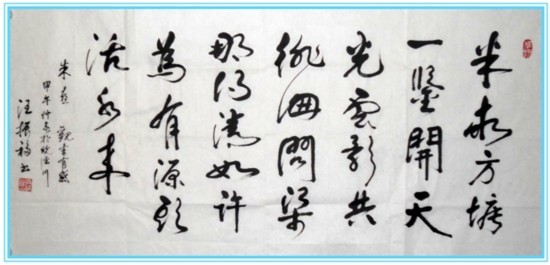 半畝方塘
一鑒開天
光雲影共
徘徊問渠
那得清如許
為有源頭
活水來
朱熹 觀書有感
甲午仲春於川
汪振福書